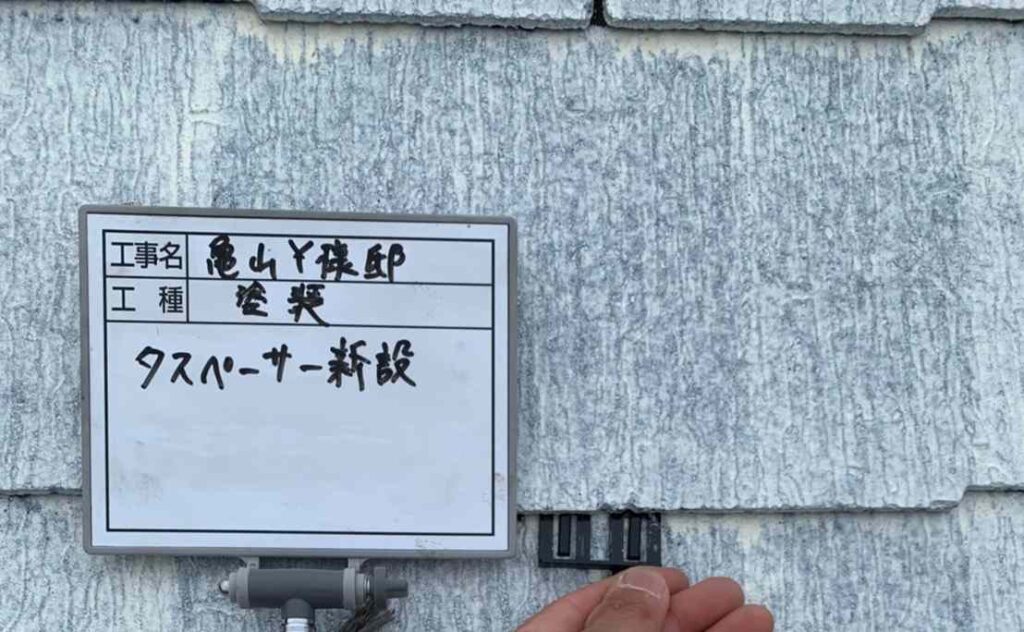 工事名 亀山Y様邸
工種 塗装
タスペーサー新設